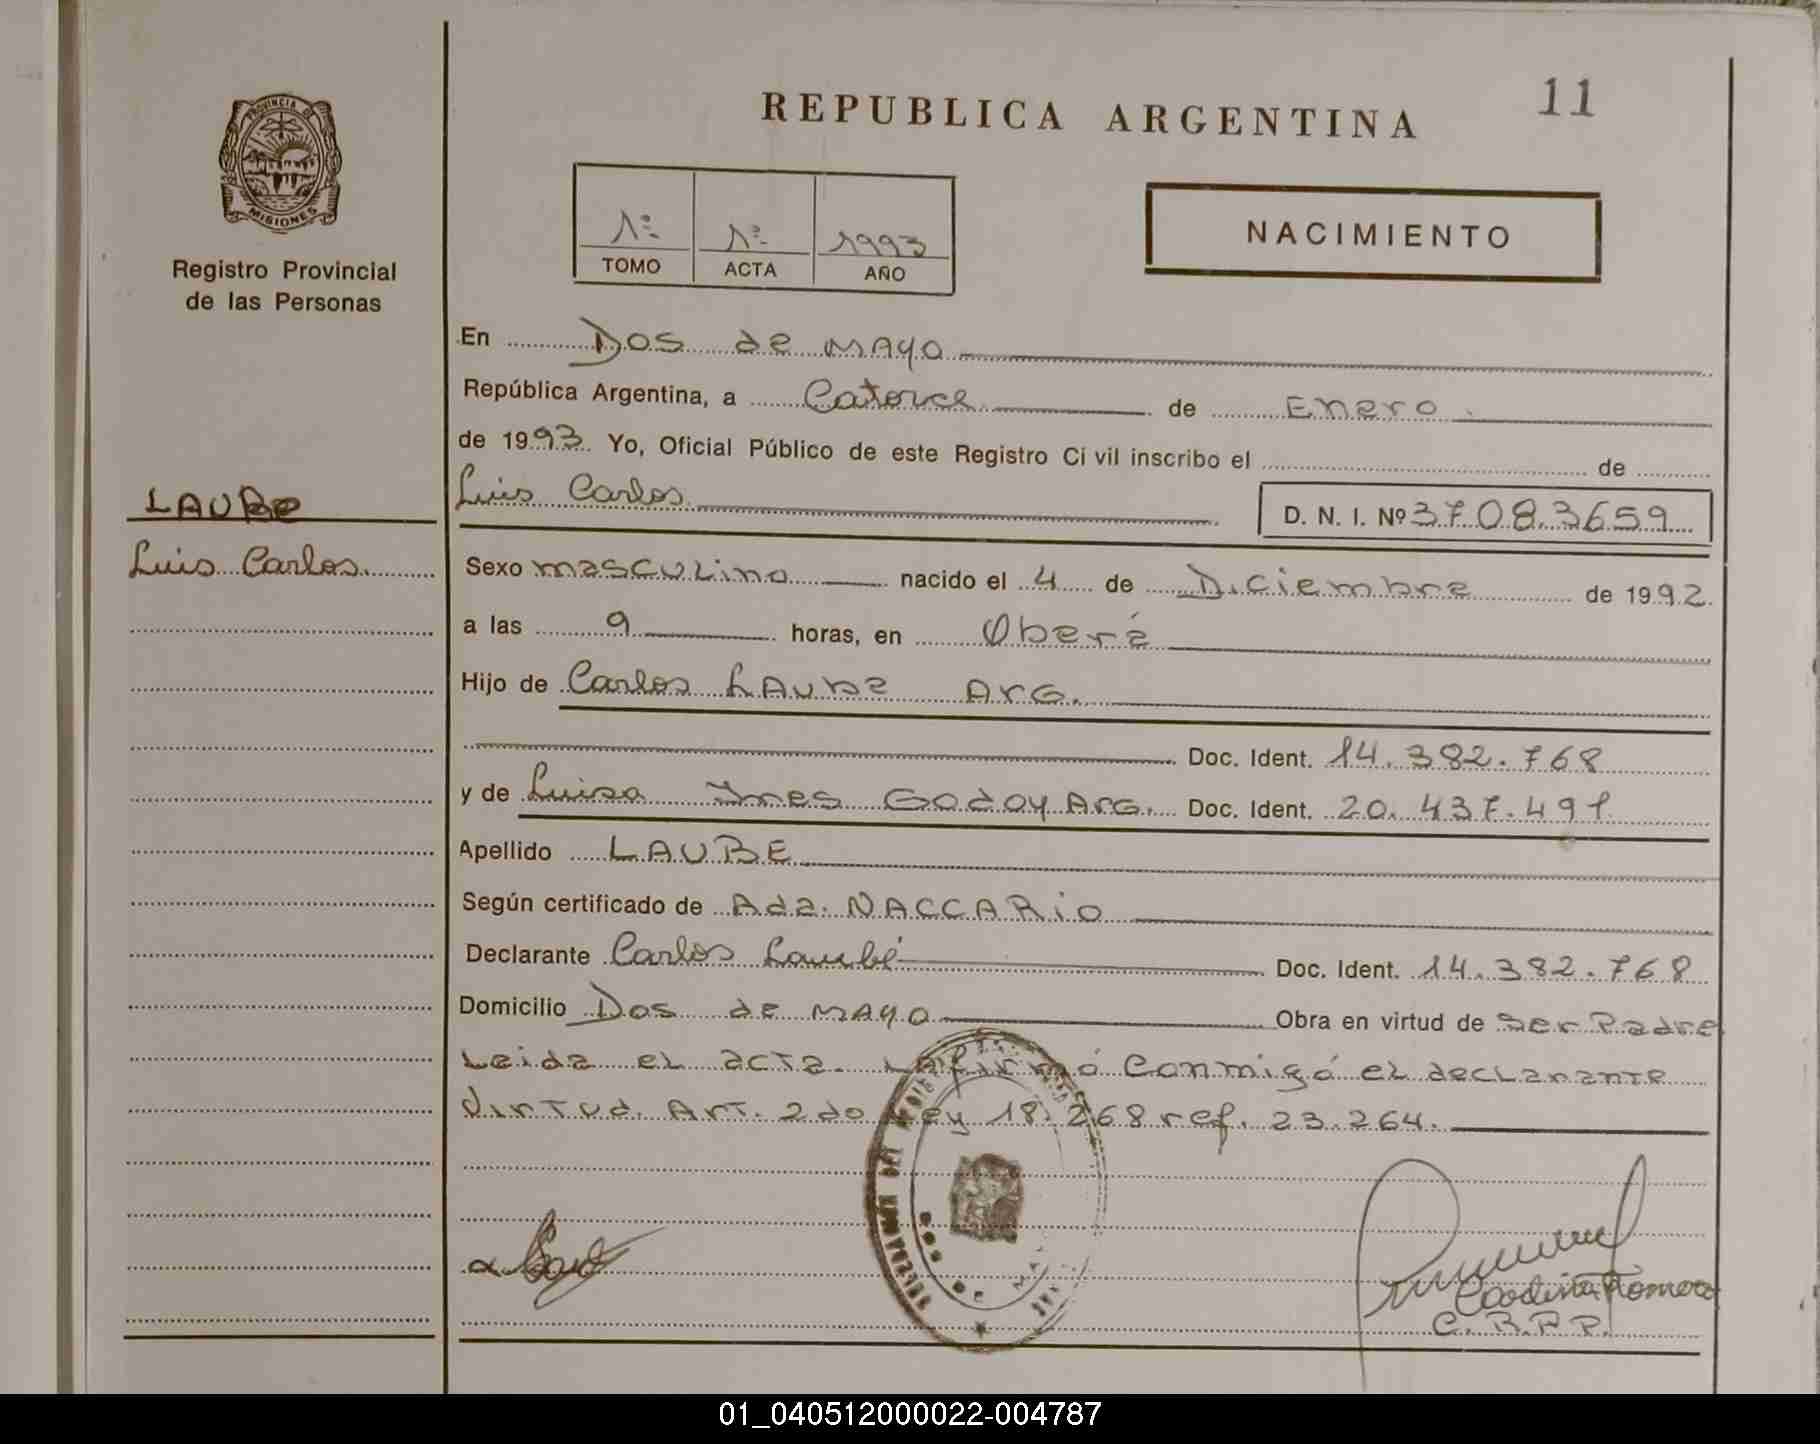 REPUBLICA ARGENTINA
11
PROVINCIA DE
MISIONES
Registro Provincial
de las Personas
1º
1º
1993
TOMO
ACTA
AÑO
NACIMIENTO
En Dos de Mayo
República Argentina, a Catorce de Enero
de 1993. Yo, Oficial Público de este Registro Ci vil inscribo el de
Luis Carlos
D. N. I. Nº 37083659
LAUBE
Luis Carlos
Sexo masculino nacido el 4 de Diciembre de 1992.
a las 9 horas, en Oberá
Hijo de Carlos Laube Arg.
Doc. Ident. 14.382.768
y de Luisa Ines Godoy Arg. Doc. Ident. 20.437.491
Apellido LAUBE
Según certificado de Ada. NACCARIO
Declarante Carlos Laubé Doc. Ident. 14.382.768
Domicilio Dos de Mayo Obra en virtud de Ser Padre
Leida el acta. La firmó Conmigó el declarante
Virtud. Art. 2do Ley 18.268 ref. 23.264.
Romero
C.R.P.P.
01_040512000022-004787